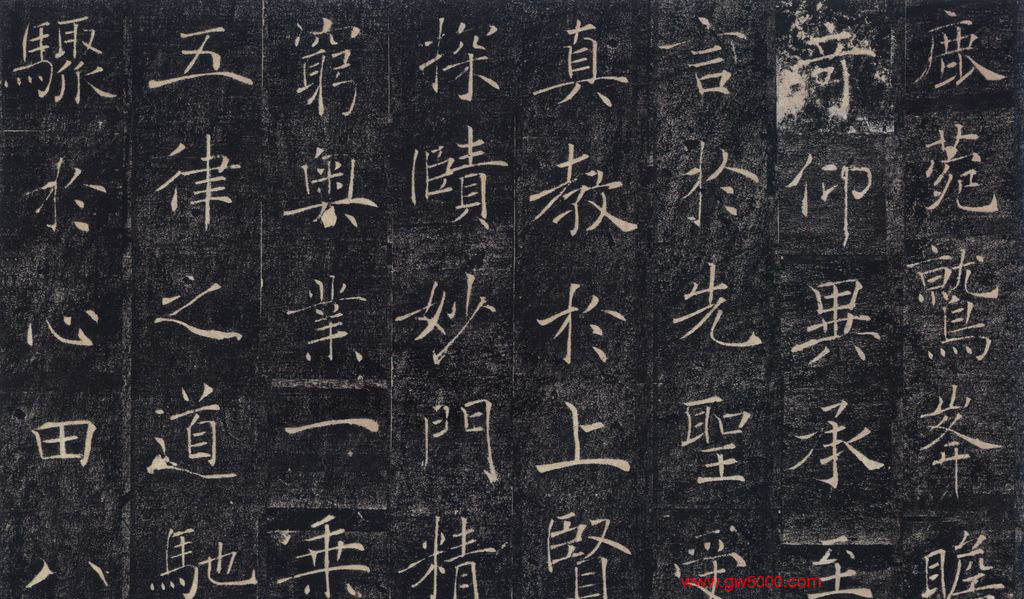 鹿菀鷲峯瞻
奇仰異承至
言於先聖受
真教於上賢
探賾妙門精
窮奧業一乘
五律之道馳
驟於心田八
www.gw5000.com